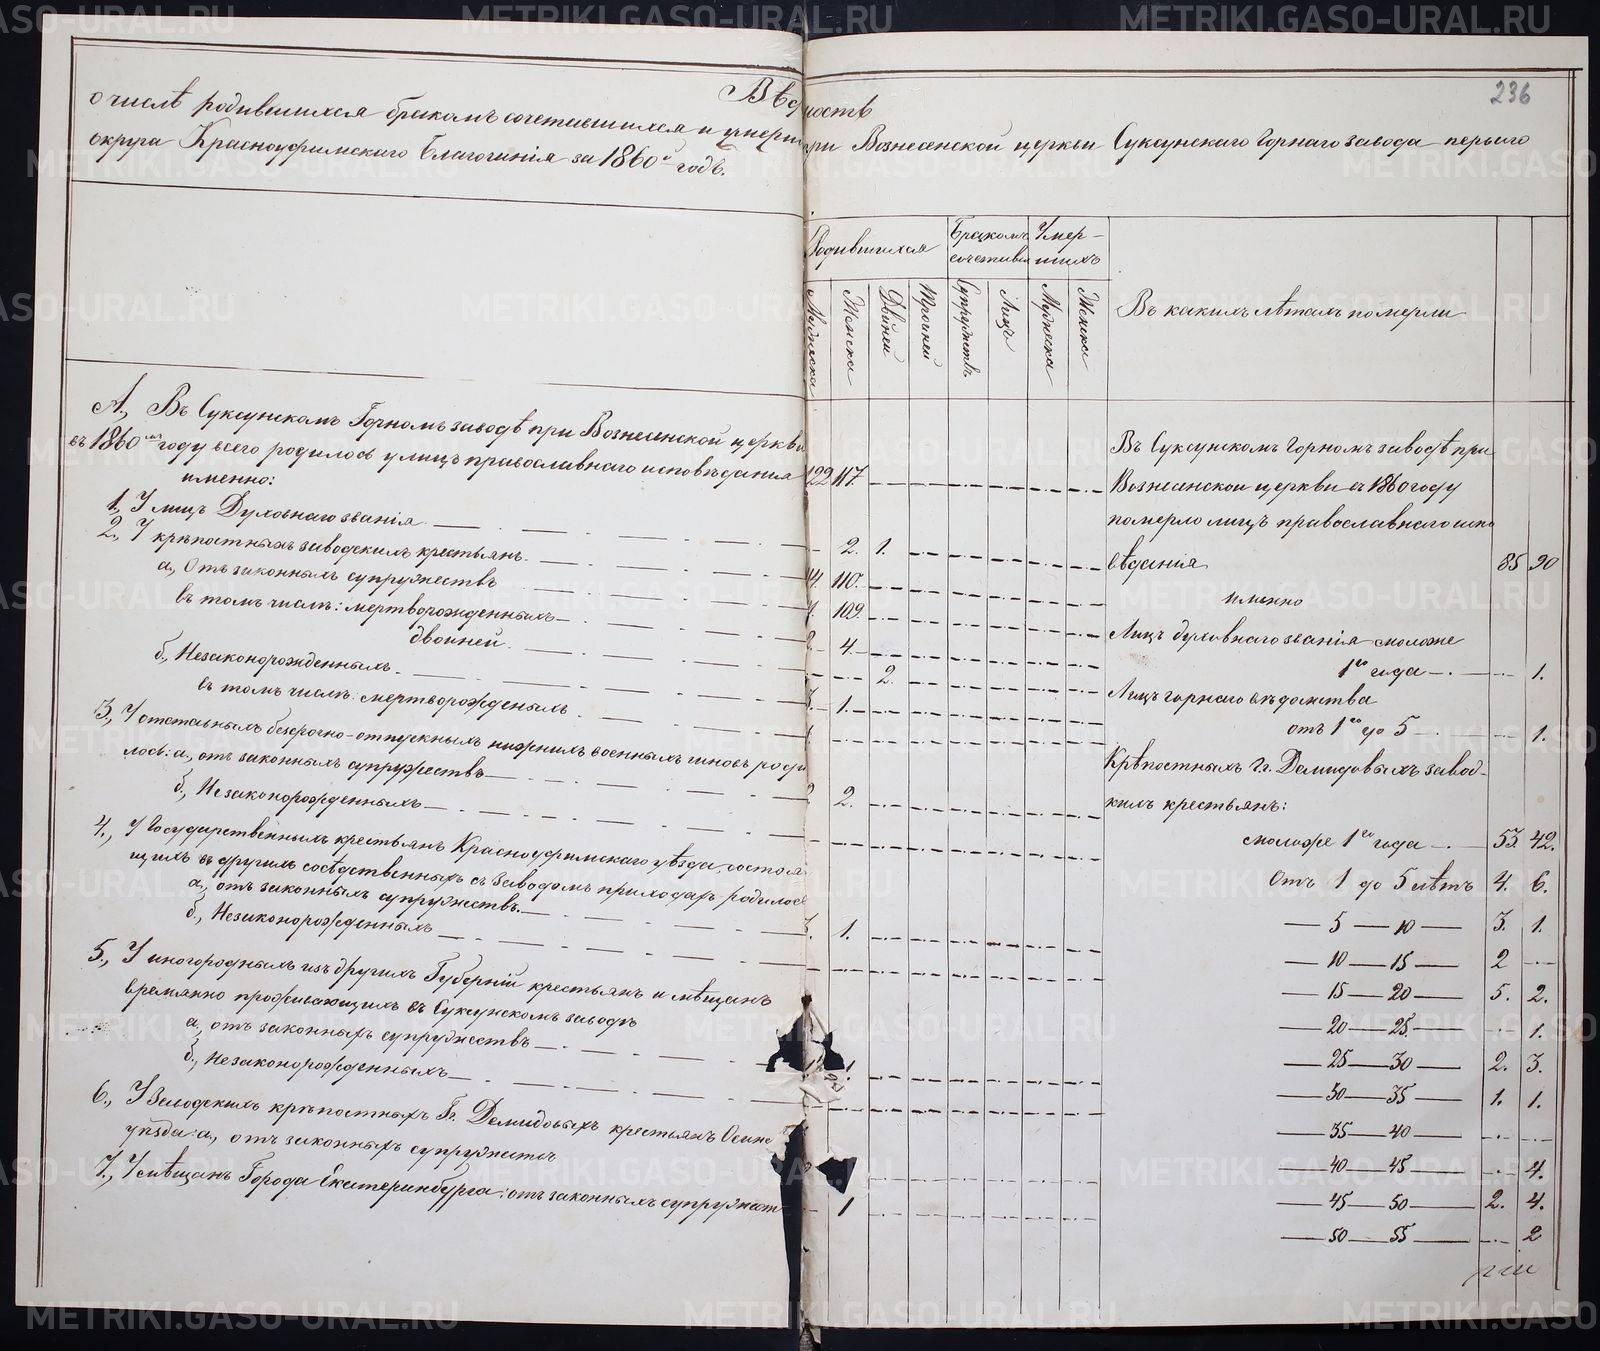 236
Вѣдомость
о числѣ родившихся бракомъ сочетавшихся и умерш при Вознесенской церкви Суксунскаго Горнаго завода перваго
округа Красноуфимскаго Благочинія за 1860й годъ.
Родившихся
Бракомъ сочетавш
Умер-шихъ
Мужеска
Женска
Двойней
Тройней
Супружствъ
Лицъ
Мужеска
Женска
Въ какихъ лѣтахъ померли
А., Въ Суксунскомъ Горномъ заводѣ при Вознесенской церкви
въ 1860мъ году всего родилось у лицъ православнаго исповѣданія 122 117
именно:
1., У лицъ Духовнаго званія — 2. 1.
2., У крѣпостныхъ заводскихъ крестьянъ 110.
а., Отъ законныхъ супружествъ 109.
въ томъ числѣ: мертворожденныхъ 4.
двойней 2.
б., Незаконорожденныхъ 1.
въ томъ числѣ: мертворожденыхъ
3., У отставныхъ безсрочно-отпускныхъ нижнихъ военныхъ чиновъ роди
лось: а., отъ законныхъ супружествъ 2.
б., Незаконорожденныхъ
4., У Государственныхъ крестьянъ Красноуфимскаго уѣзда, состоя
щихъ въ другихъ сосѣдственныхъ съ Заводомъ приходахъ родилось
а., отъ законныхъ супружествъ. 1.
б., Незаконорожденныхъ
5., У иногородныхъ изъ другихъ Губерній крестьянъ и мѣщанъ
времянно проживающихъ въ Суксунскомъ заводѣ
а., отъ законныхъ супружествъ 1.
б., Незаконорожденныхъ
6., У Заводскихъ крѣпостныхъ Гг. Демидовыхъ крестьянъ Осинс
уѣзда: а., отъ законныхъ супружествъ
7., У мѣщанъ Города Екатеринбурга: отъ законныхъ супружест — 1
Въ Суксунскомъ Горномъ заводѣ при
Вознесенской церкви въ 1860 году
померло лицъ православнаго испо
вѣданія 85 90
именно
Лицъ духовнаго званія моложе
1го года — 1.
Лицъ горнаго вѣдомства
отъ 1го до 5 — 1.
Крѣпостныхъ Гг. Демидовыхъ завод-
кихъ крестьянъ:
моложе 1го года — 53. 42.
Отъ 1 до 5 лѣтъ 4. 6.
— 5 — 10 — 3. 1.
— 10 — 15 — 2 —
— 15 — 20 — 5. 2.
— 20 — 25. — 1.
— 25 — 30 — 2. 3.
— 30 — 35 — 1. 1.
— 35 — 40 —
— 40 — 45 — 4.
— 45 — 50 — 2. 4.
— 50 — 55 — 2
METRIKI.GASO-URAL.RU